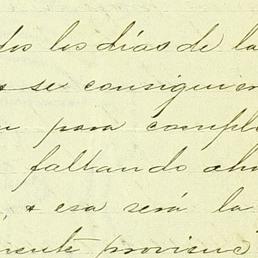 dos los días de la
se consiguier
para comple
faltando aho
, & esa será la
mente provisenc